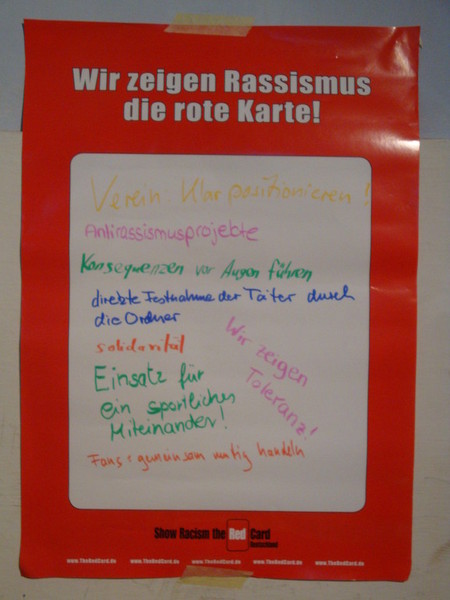 Wir zeigen Rassismus
die rote Karte!
Verein: Klar positionieren!
Antirassismusprojekte
Konsequenzen vor Augen führen
direkte Festnahme der Täter durch
die Ordner
Solidarität
Wir zeigen
Toleranz!
Einsatz für
ein sportliches
Miteinander!
Fans: gemeinsam mutig handeln
Show Racism the Red Card
Deutschland
www.TheRedCard.de www.TheRedCard.de www.TheRedCard.de www.TheRedCard.de www.TheRedCard.de